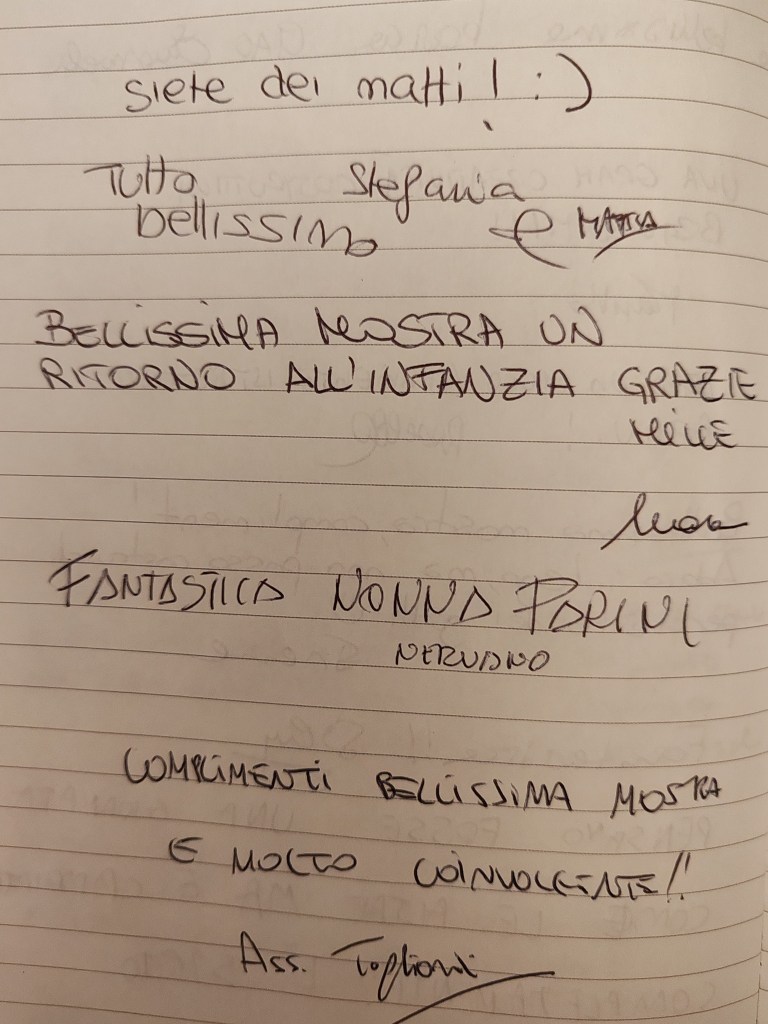 siete dei matti! :)
Tutto Stefania
bellissimo e MATTIA
BELLISSIMA MOSTRA UN
RITORNO ALL'INFANZIA GRAZIE
MILLE
FANTASTICA NONNA PARINI
NERVIANO
COMPLIMENTI BELLISSIMA MOSTRA
E MOLTO COINVOLGENTE!!
Ass.